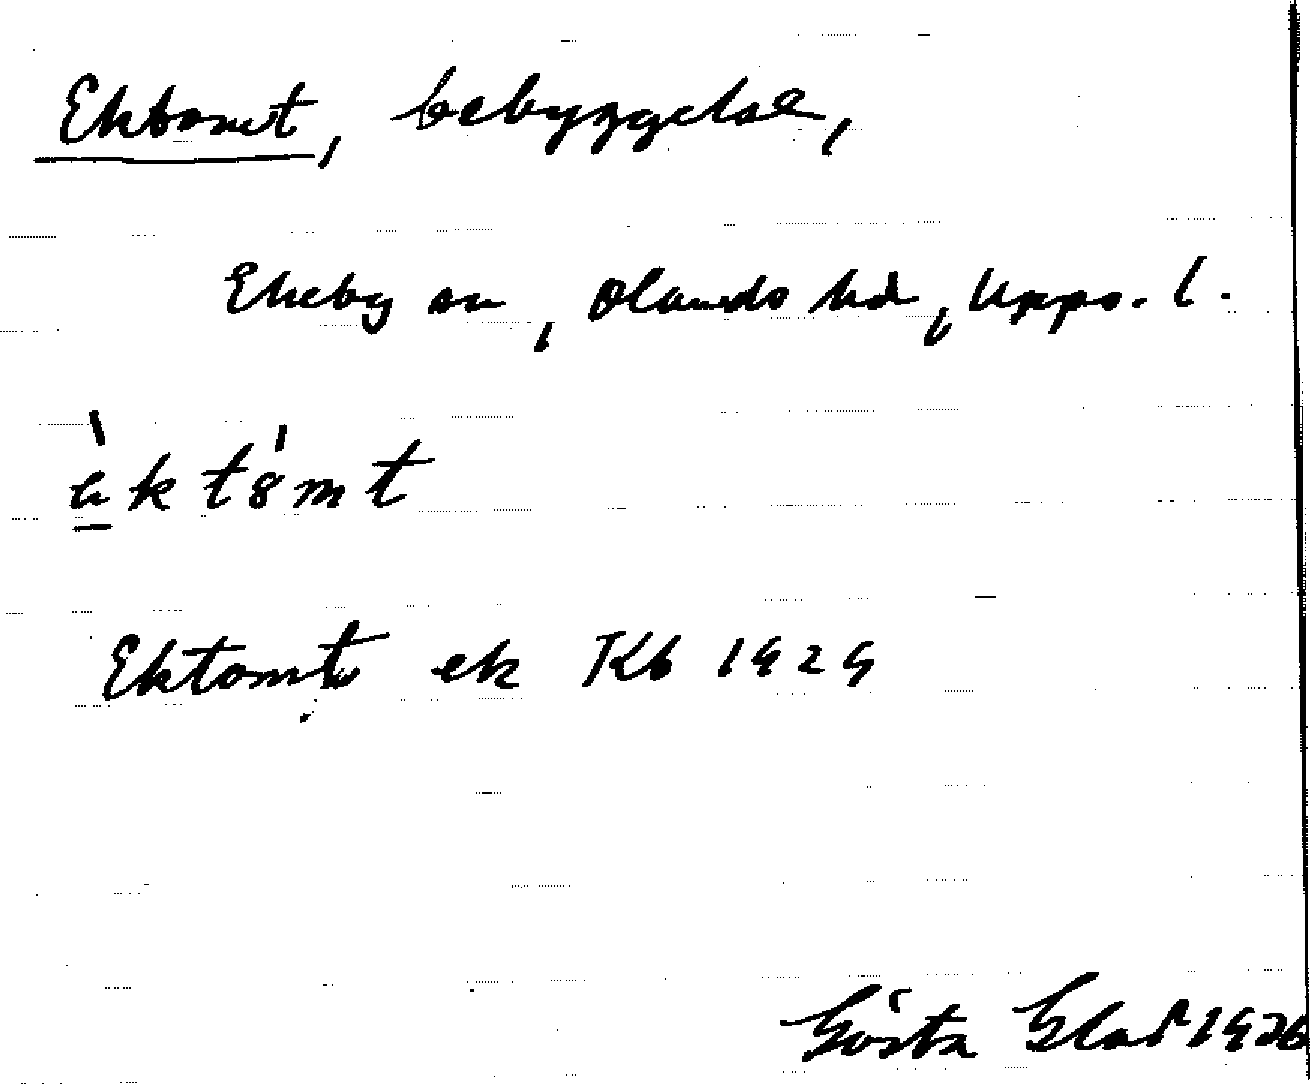 Ektomt, bebyggelse,
Ekeby sn, Olands hd, Upps. l.
ὲktȯmt
Ektomt ek Kb 1929
Gösta Glad 1926